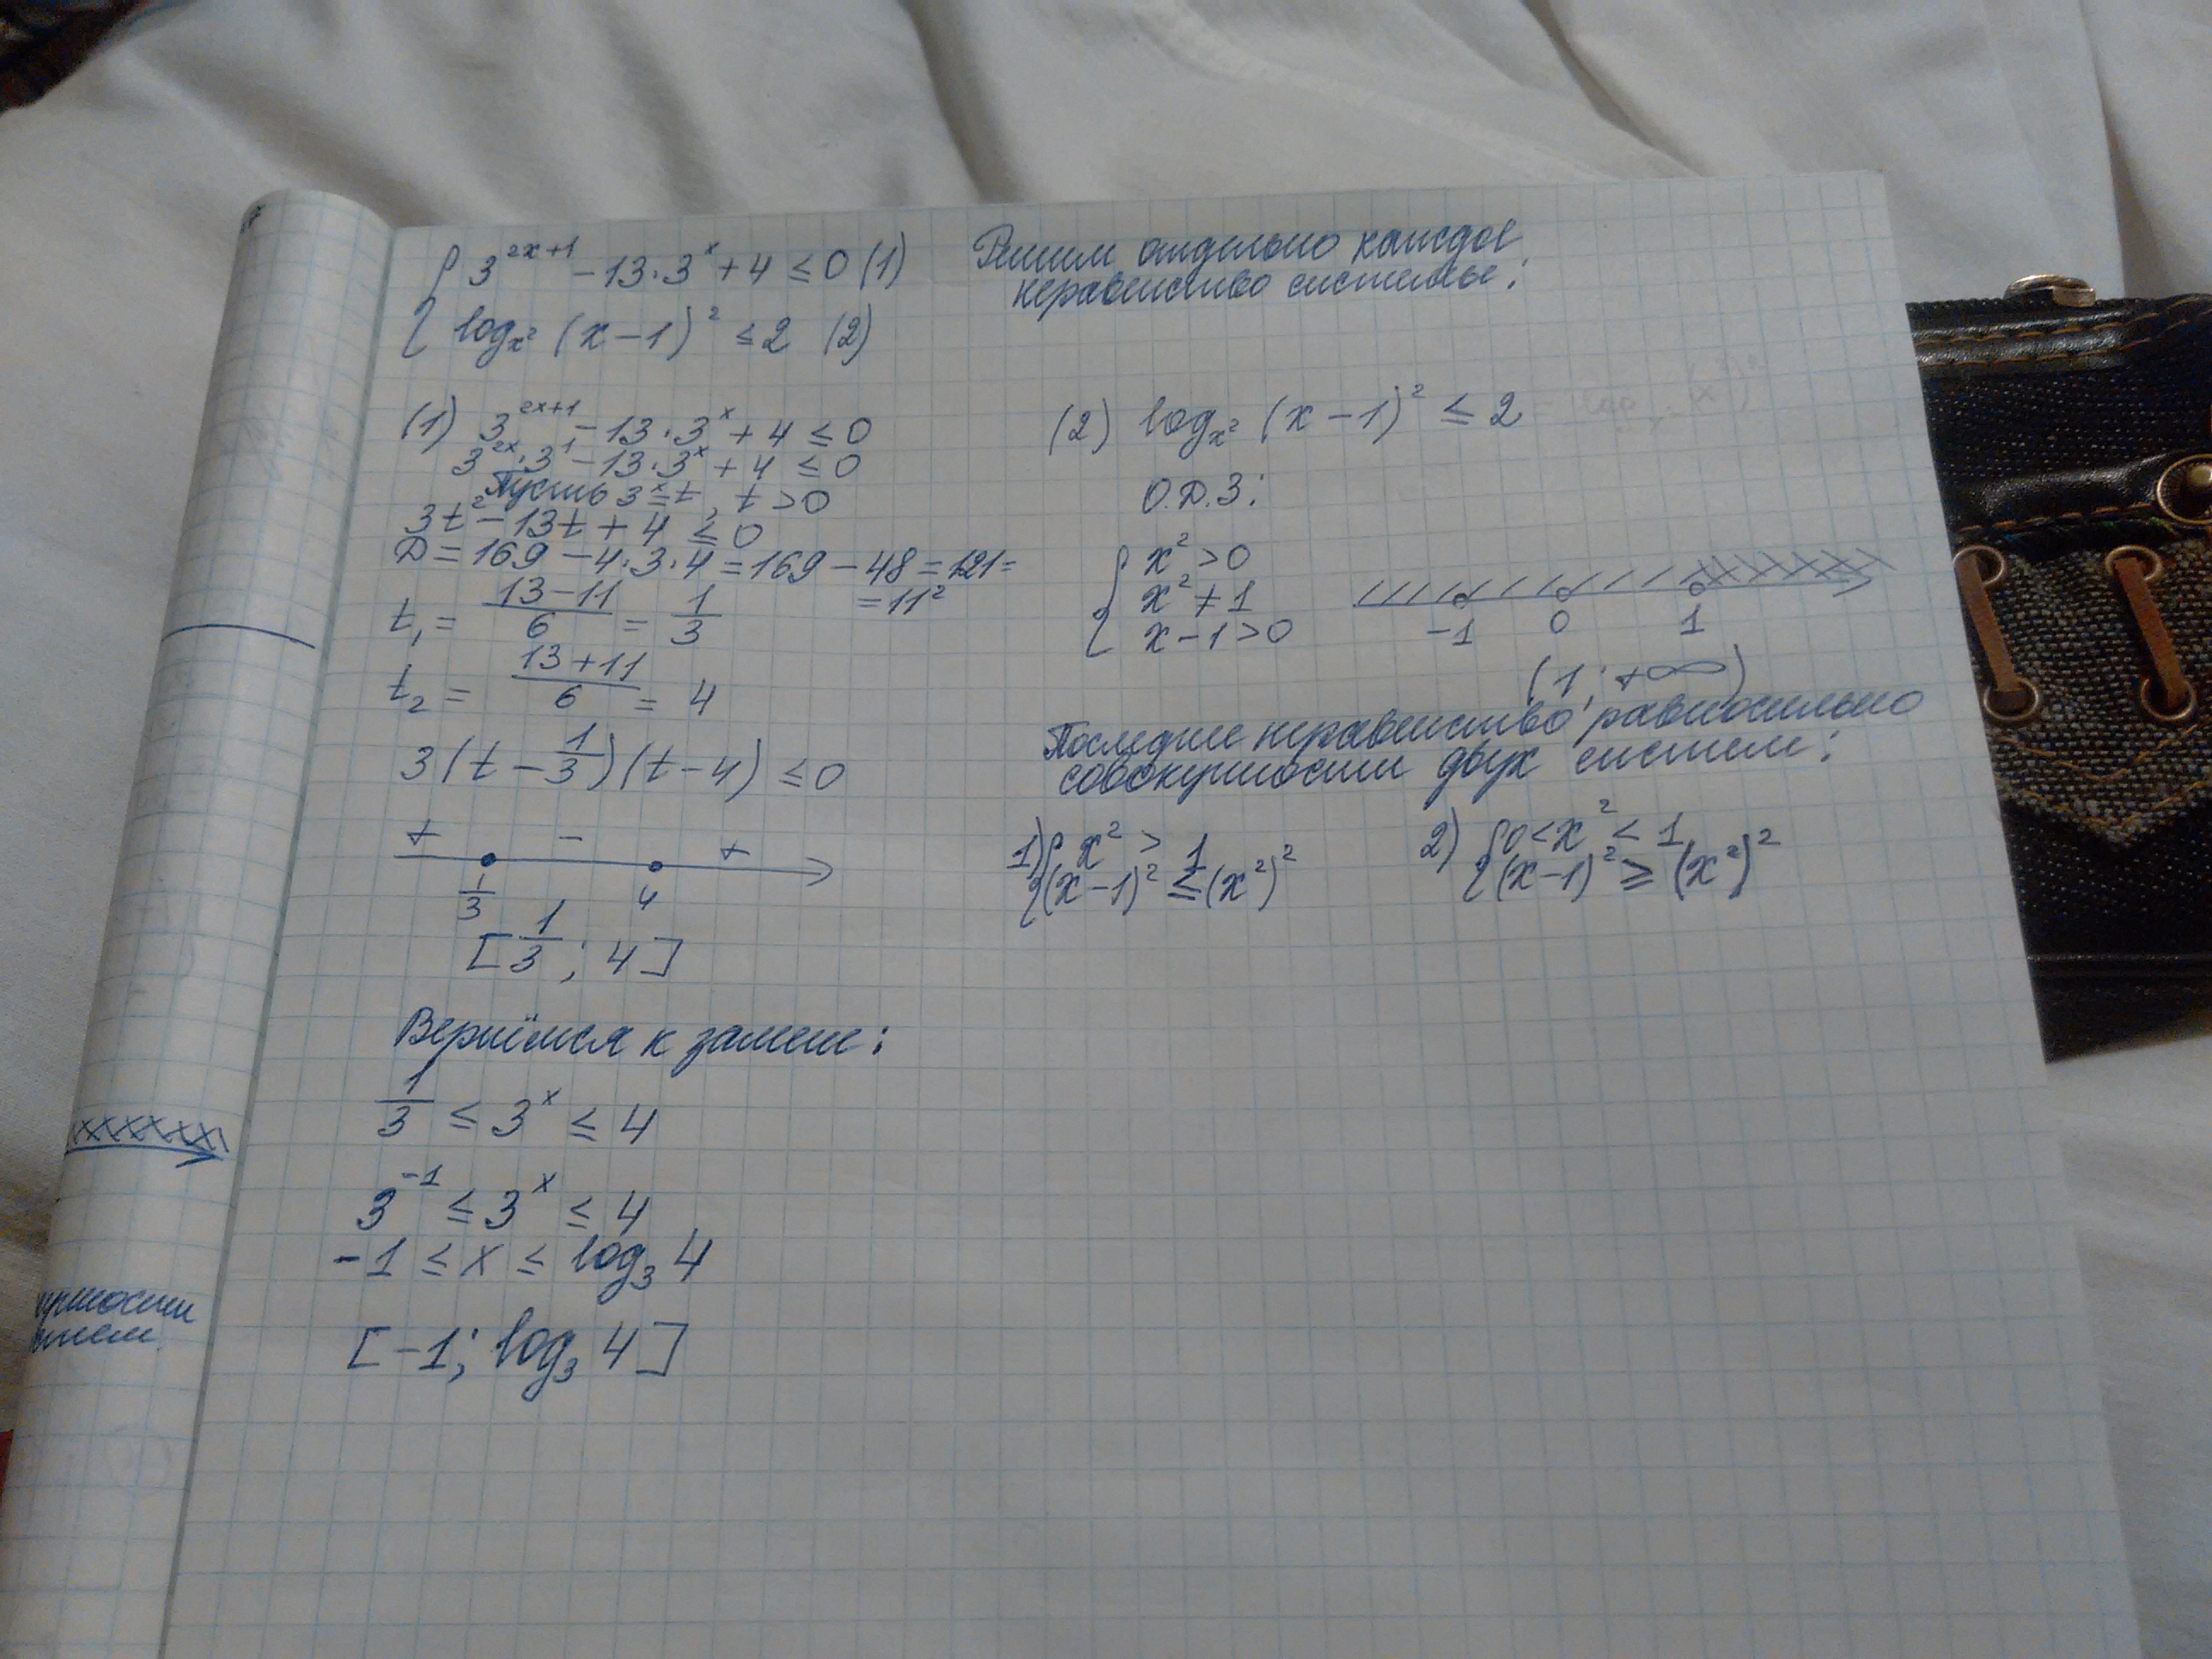 { 3^{2x+1} - 13·3^x + 4 ≤ 0 (1)
{ log_{x²} (x-1)² ≤ 2 (2)
Решим отдельно каждое
неравенство системы:
(1) 3^{2x+1} - 13·3^x + 4 ≤ 0
3^{2x}·3^1 - 13·3^x + 4 ≤ 0
Пусть 3^x = t, t > 0
3t² - 13t + 4 ≤ 0
D = 169 - 4·3·4 = 169 - 48 = 121 =
= 11²
t₁ = (13-11)/6 = 1/3
t₂ = (13+11)/6 = 4
3(t - 1/3)(t - 4) ≤ 0
+ - +
1/3 4
[1/3; 4]
Вернёмся к замене:
1/3 ≤ 3^x ≤ 4
3^{-1} ≤ 3^x ≤ 4
-1 ≤ x ≤ log₃ 4
[-1; log₃ 4]
(2) log_{x²} (x-1)² ≤ 2
О.Д.З:
{ x² > 0
{ x² ≠ 1
{ x - 1 > 0
-1 0 1
(1; +∞)
Последнее неравенство равносильно
совокупности двух систем:
1) { x² > 1
{ (x-1)² ≤ (x²)²
2) { 0 < x² < 1
{ (x-1)² ≥ (x²)²